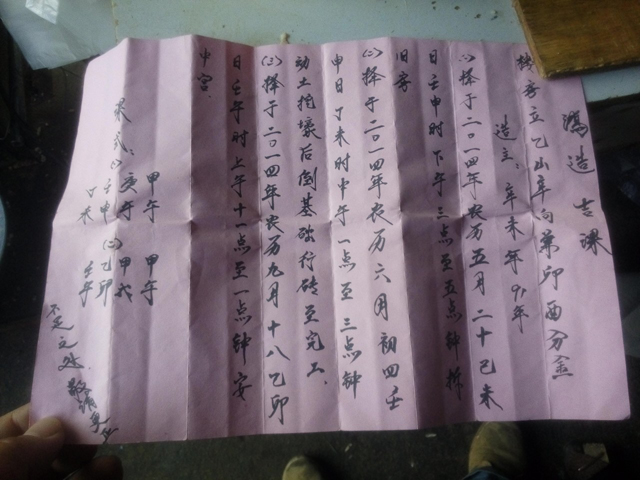 鸿造吉课
楼房立乙山辛向兼卯酉分金
造主：辛未年91年
(一)择于二〇一四年农历五月二十己未
日壬申时下午三点至五点钟拆
旧房
(二)择于二〇一四年农历六月初四壬
申日丁未时中午一点至三点钟
动土挖壕后倒基础行砖至完工、
(三)择于二〇一四年农历九月十八乙卯
日壬午时上午十一点至一点钟安
中宫.
甲午 甲午
庚午 甲戌
式(一)壬申(二)乙卯
丁未 壬午
不足之处敬请